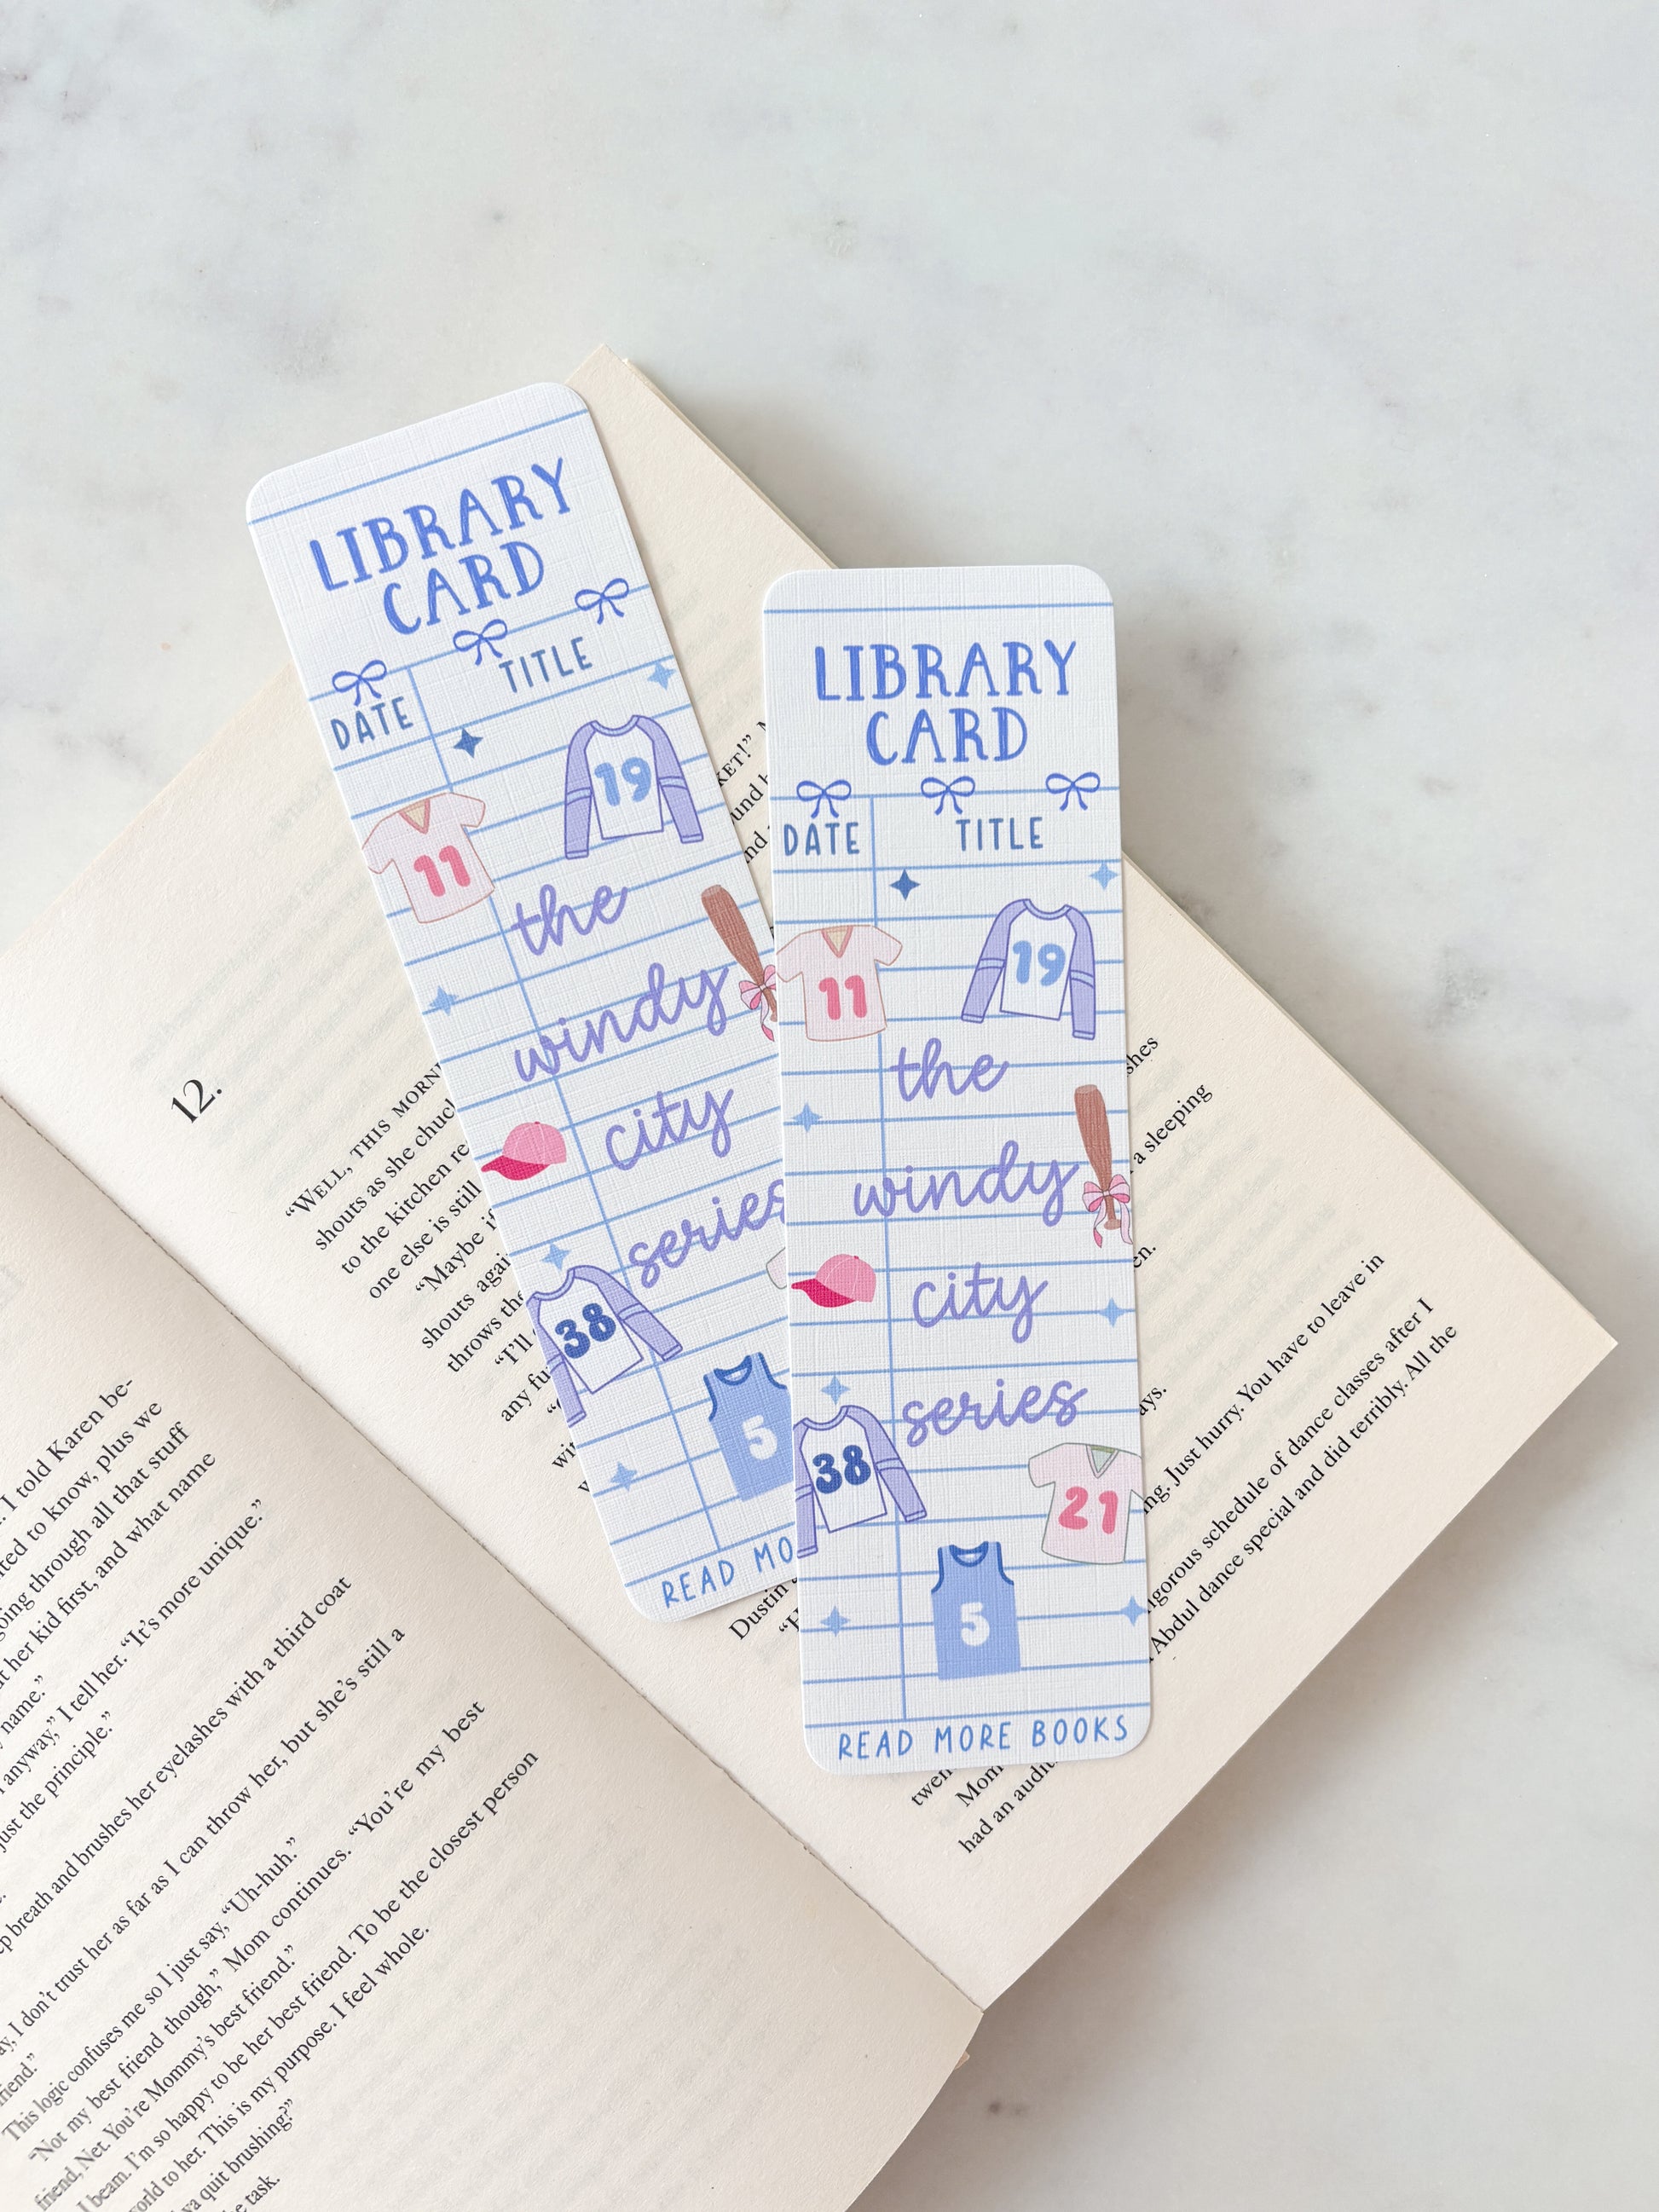 LIBRARY
CARD
DATE
TITLE
19
11
the
windy
city
series
38
5
READ MO
LIBRARY
CARD
DATE
TITLE
19
11
the
windy
city
series
38
21
5
READ MORE BOOKS
12.
“WELL, THIS MORN
shouts as she chuc
to the kitchen re
one else is still
“Maybe if
shouts again
throws the
“I’ll
any fu
KET!”
a sleeping
ing. Just hurry. You have to leave in
igorous schedule of dance classes after I
Abdul dance special and did terribly. All the
Dustin
twen
Mom
had an audi
I told Karen be-
ted to know, plus we
going through all that stuff
her kid first, and what name
name.”
anyway,” I tell her. “It’s more unique.”
just the principle.”
breath and brushes her eyelashes with a third coat
I don’t trust her as far as I can throw her, but she’s still a
friend.”
This logic confuses me so I just say, “Uh-huh.”
“Not my best friend though,” Mom continues. “You’re my best
friend, Net. You’re Mommy’s best friend.”
I beam. I’m so happy to be her best friend. To be the closest person
world to her. This is my purpose. I feel whole.
quit brushing?”
task.